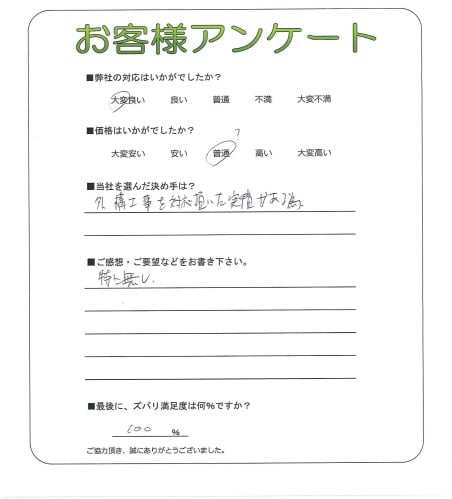 お客様アンケート
■弊社の対応はいかがでしたか？
大変良い 良い 普通 不満 大変不満
■価格はいかがでしたか？
?
大変安い 安い 普通 高い 大変高い
■当社を選んだ決め手は？
外構工事を対応頂いた実績がある為。
■ご感想・ご要望などをお書き下さい。
特に無し.
■最後に、ズバリ満足度は何%ですか？
100 %
ご協力頂き、誠にありがとうございました。